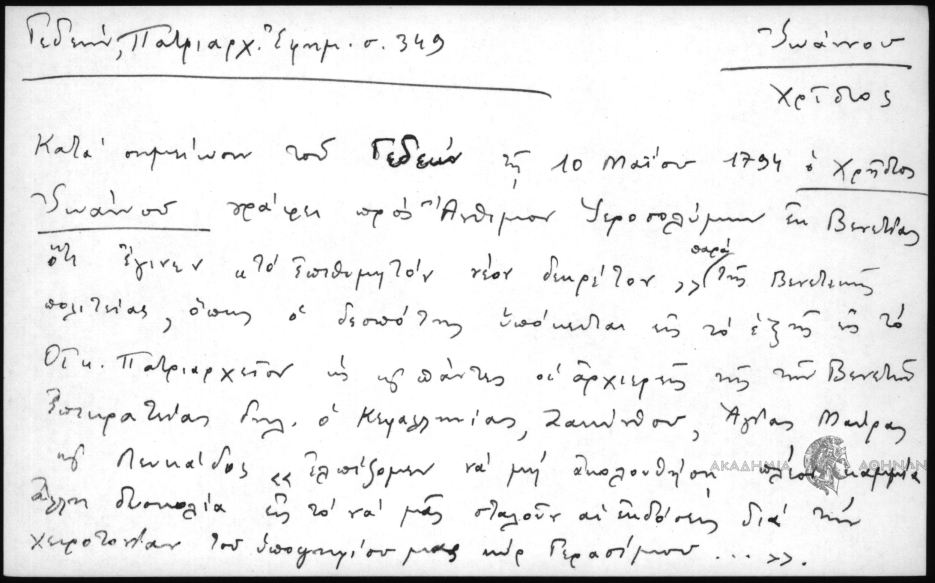 Γεδεών, Πατριαρχ. Ἐφημ. σ. 349
Ἰωάννου
Χρῆστος
Κατὰ σημείωσιν τοῦ Γεδεών τῇ 10 Μαΐου 1794 ὁ Χρῆστος
Ἰωάννου γράφει πρὸς Ἄνθιμον Ἱεροσολύμων ἐκ Βενετίας
ὅτι ἔγινεν «τὸ ἐπιθυμητὸν νέον δεκρέτον» παρὰ τῆς Βενετικῆς
πολιτείας, ὅπως ὁ δεσπότης ὑπόκειται εἰς τὸ ἑξῆς εἰς τὸ
Οἰκ. Πατριαρχεῖον ὡς κ πάντες οἱ ἀρχιερεῖς τῆς τῶν Βενετῶν
Ἐπικρατείας δηλ. ὁ Κεφαλληνίας, Ζακύνθου, Ἁγίας Μαύρας
κ Λευκάδος «ἐλπίζομεν νὰ μὴ ἀκολουθήσῃ πλέον καμμία
ἄλλη δυσκολία εἰς τὸ νὰ μᾶς σταλοῦν αἱ ἐκδόσεις διὰ τὴν
χειροτονίαν τοῦ ὑποψηφίου μας κὺρ Γερασίμου ...».
ΑΚΑΔΗΜΙΑ ΑΘΗΝΩΝ